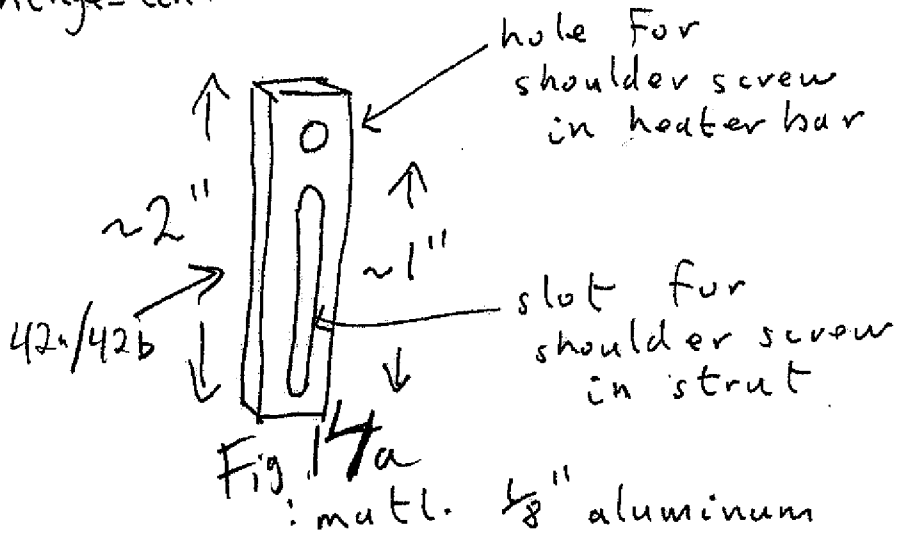 hole For
shoulder screw
in heater bar
~2"
~1"
42a/42b
slot for
shoulder screw
in strut
Fig 14a
: matl. 1/8" aluminum